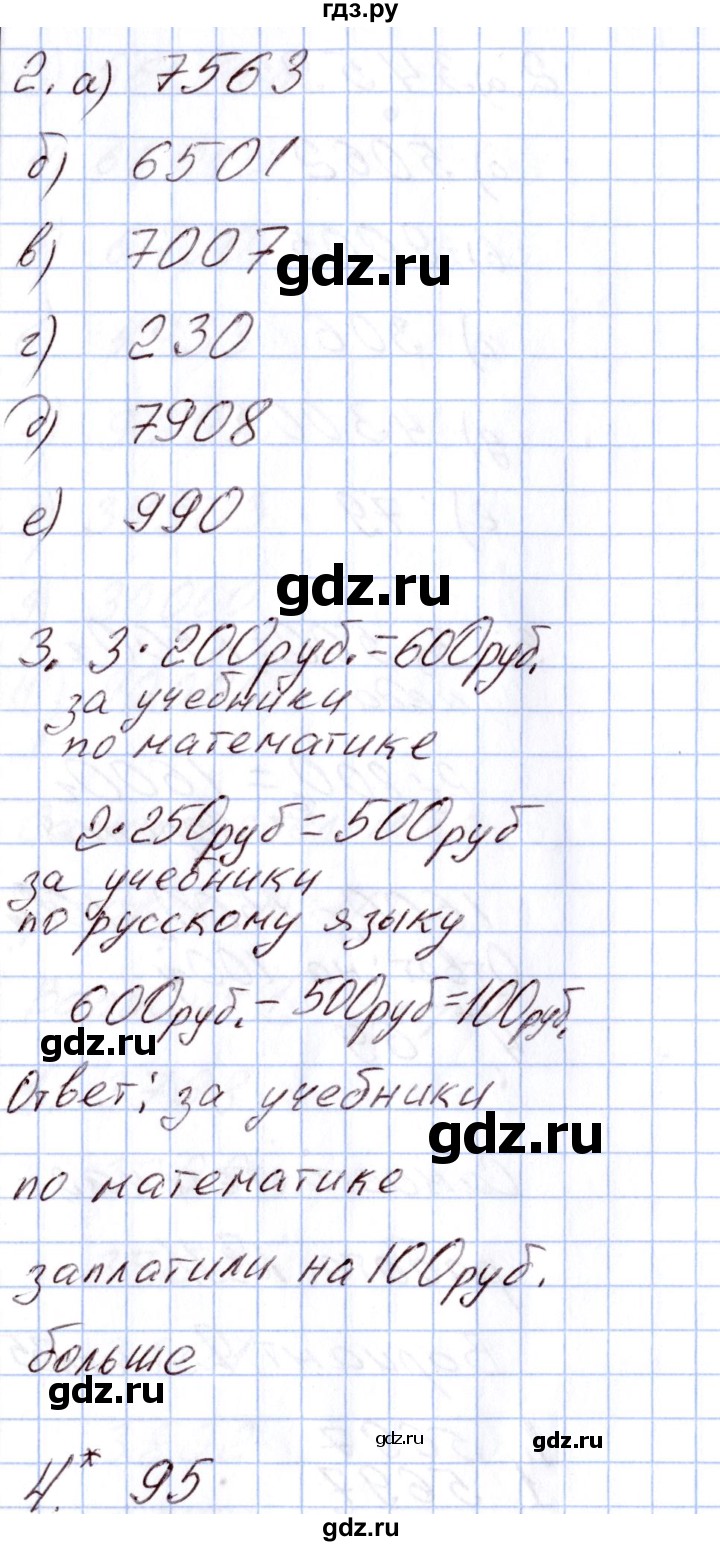 гдз.ру
2. а) 7563
б) 6501
в) 7007
gdz.ru
г) 230
д) 7908
е) 990
gdz.ru
3. 3·200руб.=600руб.
за учебники
по математике
2·250руб=500руб
за учебники
по русскому языку
600руб.-500руб=100руб.
gdz.ru
Ответ: за учебники
gdz.ru
по математике
заплатили на 100руб.
больше
gdz.ru
gdz.ru
gdz.ru
4.* 95
gdz.ru